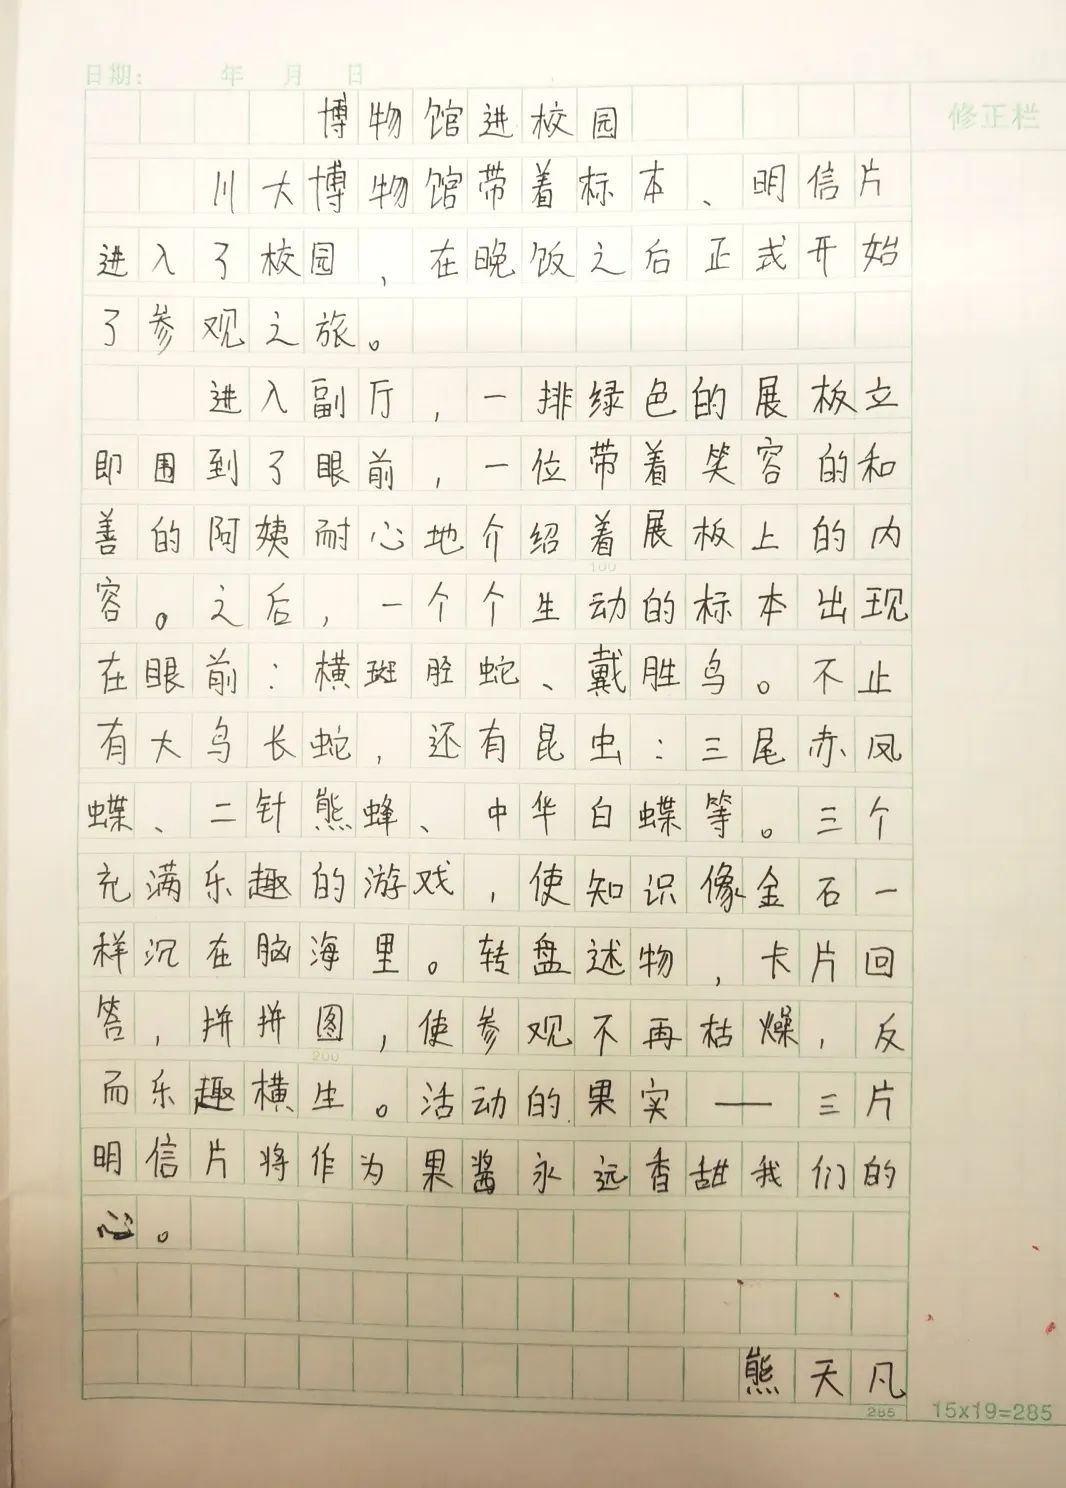 日期： 年 月 日
修正栏
博物馆进校园
川大博物馆带着标本、明信片
进入了校园，在晚饭之后正式开始
了参观之旅。
进入副厅，一排绿色的展板立
即围到了眼前，一位带着笑容的和
善的阿姨耐心地介绍着展板上的内
100
容。之后，一个个生动的标本出现
在眼前：横斑胫蛇、戴胜鸟。不止
有大鸟长蛇，还有昆虫：三尾赤凤
蝶、二针熊蜂、中华白蝶等。三个
充满乐趣的游戏，使知识像金石一
样沉在脑海里。转盘述物，卡片回
答，拼拼图，使参观不再枯燥，反
200
而乐趣横生。活动的果实——三片
明信片将作为果酱永远香甜我们的
心。
熊天凡
285
15x19=285